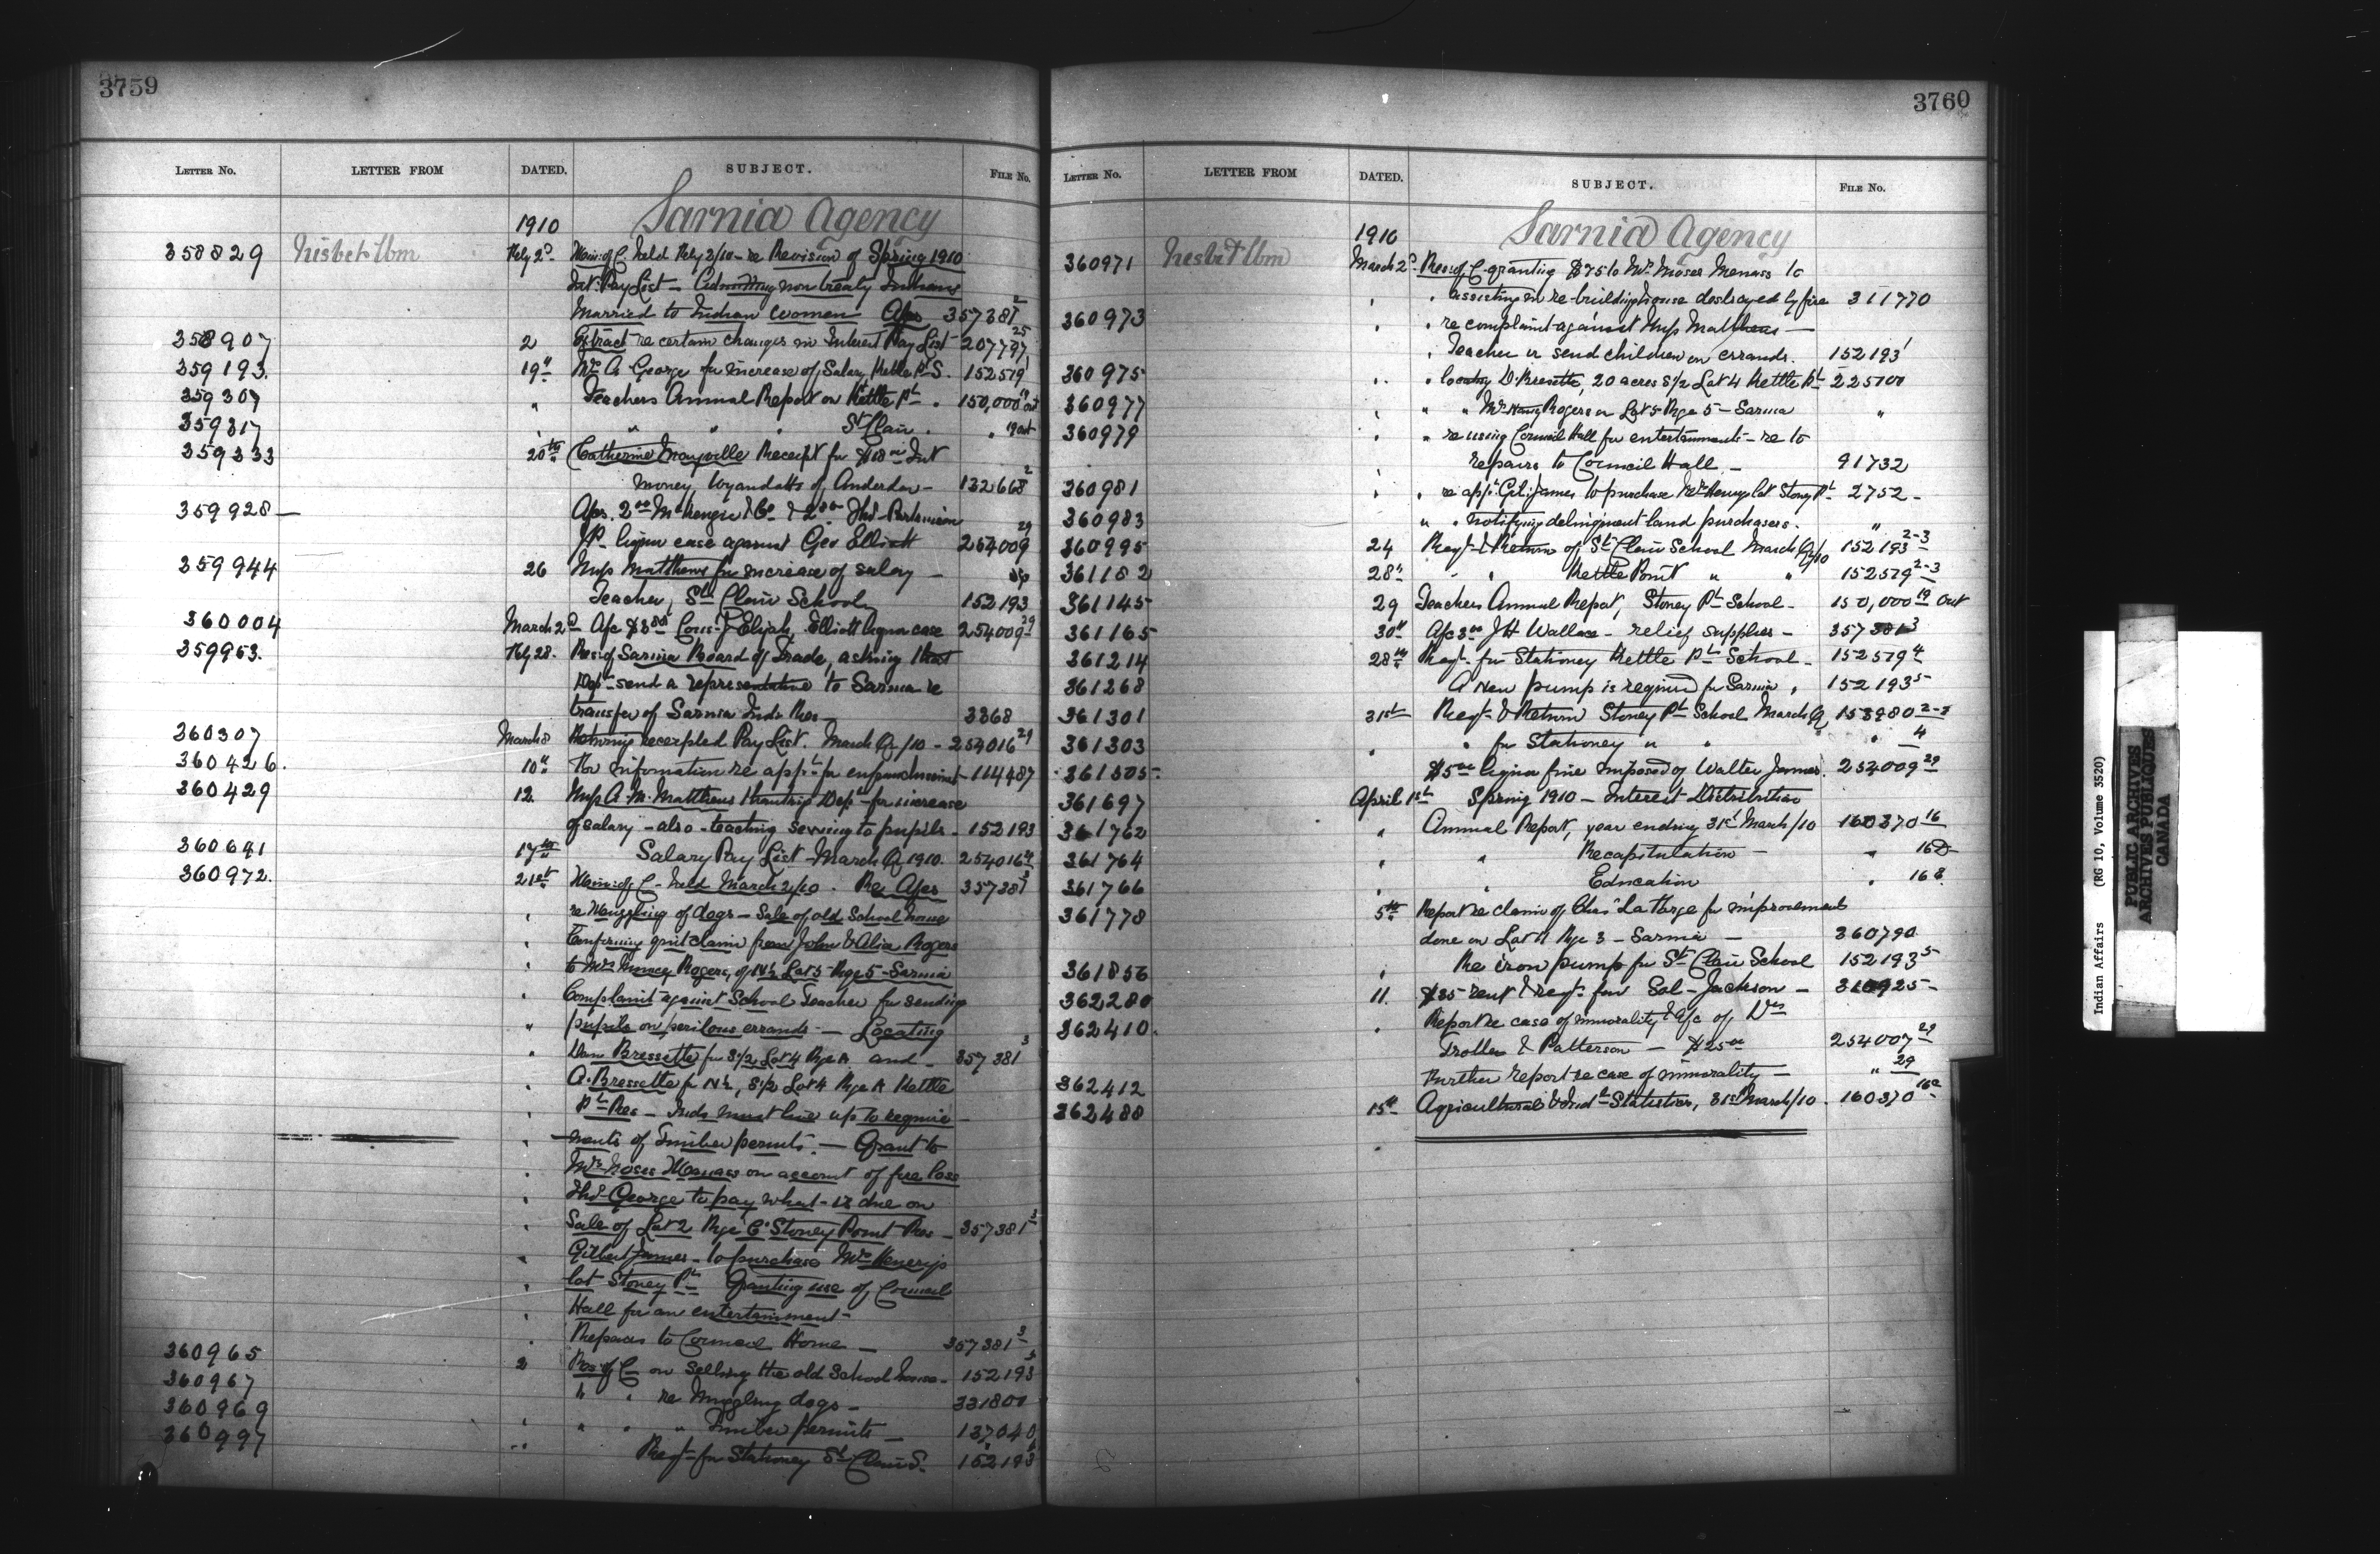 3759
LETTER NO. LETTER FROM DATED. SUBJECT. FILE NO.
1910 Sarnia Agency
358829 Nisbet Wm Feby 2d Min: of C. held Feby 2/10 - re Revision of Spring 1910
Int. Pay List - Admitting non treaty Indians
Married to Indian women Apr 357381 2
358907 2 Extract re certain changes in Interest Pay List 207797 25
359193. 19" Mr A George for increase of Salary Kettle Pt S. 152579
359307 " Teachers Annual Report on Kettle Pt . 150,000 19 out
359317 " " " St Clair . " 19 out
359333 20th Catherine Mayville Receipt for $18 00 Int
money Wyandotts of Anderdon - 132668 2
359928 - Apr. 2 00 McKenzie & Co & 2 Thos Partenian
JP. liquor case against Geo Elliott 254009 29
359944 26 Miss Matthews for increase of salary -
Teacher, St Clair School 152193
360004 March 2d A/c $3 80 Cons. J Elijah, Elliott liquor case 254009 29
359953. Feby 28. Res: of Sarnia Board of Trade, asking that
Dept send a representative to Sarnia re
transfer of Sarnia Inds Res - 3368
360307 March 8 Returning receipted Pay List. March Q/10 - 254016 29
360426. 10" For information re appn for enfranchisement - 114487
360429 12. Miss A. M. Matthews thanking Dept - for increase
of salary - also - teaching sewing to pupils - 152193
360691 17th Salary Pay List - March Q 1910. 254016 29
360972. 21st Min: of C - held March 2/10 . Re Apr 357381 3
" re Muzzling of dogs - Sale of old School house
" Confirming quit claim from John & Alice Rogers
" to Mrs Nancy Rogers, of N½ Lot 5 - Rge 5 - Sarnia
" Complaint against School Teacher for sending
" pupils on perilous errands - Locating
" Dan Bressette for S½ Lot 4 Rge A and 357381 3
" A. Bressette for N½, S½ Lot 4 Rge A Kettle
" Pt Res - Inds must live up to require
" ments of Timber permits. - Grant to
" Mrs Moses Menass on account of fire loss
" Thos George to pay what is due on
" Sale of Lot 2 Rge C. Stoney Point Res - 357381 3
" Gilbert James - to purchase Mrs Henrys
" lot Stoney Pt Granting use of Council
" Hall for an entertainment -
" Repairs to Council Home - 357381 3
360965 2 Res: of C on selling the old School house - 152193
360967 " " re Muzzling dogs - 331800
360969 " " " " Timber permits - 137040
360997 " Reqt - for Stationey St Clair S. 152193
3760
LETTER NO. LETTER FROM DATED. SUBJECT. FILE NO.
1910 Sarnia Agency
360971 Nisbet Wm March 2d Res: of C granting $75 to Mrs Moses Menass to
" " assisting in re-building house destroyed by fire 311770
360973 " " re complaint against Miss Matthews -
" Teacher re send children on errands. 152193
360975 " " locating D. Bresette, 20 acres S½ Lot 4 Kettle Pt 225700
360977 " " " Mrs Nancy Rogers on Lot 5 Rge 5 - Sarnia "
360979 " " re using Council Hall for entertainments - re to
" repairs to Council Hall - 91732
360981 " " re appn Gil. James to purchase Mrs Henrys lot Stoney Pt 2752 -
360983 " " notifying delinquent land purchasers. "
360995 24 Reqt & Return of St Clair School March Q/10 152193 2-3
361182 28" " " Kettle Point " " 152579 2-3
361145 29 Teachers Annual Report, Stoney Pt School - 150,000 19 out
361165 30" A/c 3 00 JH Wallace - relief supplies - 357381 3
361214 28th Reqt - for Stationey Kettle Pt School - 152579 4
361268 A New pump is required for Sarnia " 152193 5
361301 31st Reqt & Return Stoney Pt School March Q, 153980 2-3
361303 " " for Stationey " " " 4
361305. $5 00 liquor fine imposed of Walter James. 254009 29
361697 April 1st Spring 1910 - Interest Distribution
361762 " Annual Report, year ending 31st March/10 160370 16
361764 " " Recapitulation - " 16D
361766 " " Education " 16B.
361778 5th Report re claim of Chas LaFarge for improvements
done on Lot 11 Rge 3 - Sarnia - 360790
361856 " Re iron pump for St Clair School 152193 5
362280 11. $35 rent & reqt for Sol - Jackson -
362410. " Report re case of immorality & A/c of Drs
Trotter & Patterson - $25 00 254007 29
362412 Further report re case of immorality - " 29
362488 15th Agricultural & Indl Statistics, 31st March/10 . 160370 16c
Indian Affairs (RG 10, Volume 3520)
PUBLIC ARCHIVES
ARCHIVES PUBLIQUES
CANADA